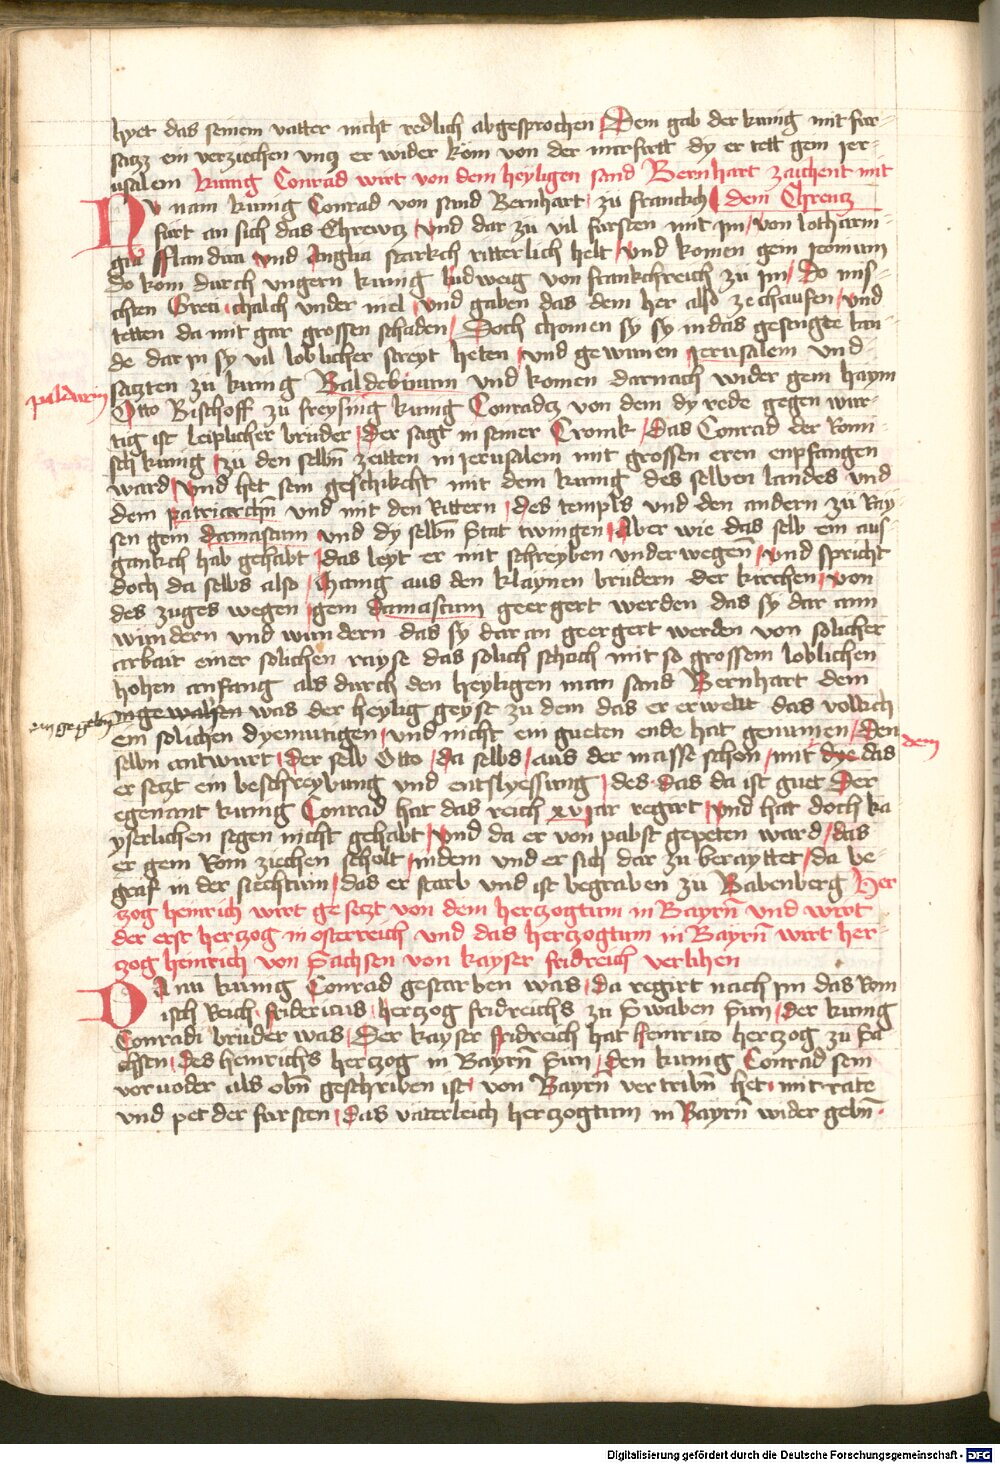 hyet das seinem vatter nicht redlich abgesprochen Dem gab der kunig mit für-
satz ein verziechen untz er wider kom von der merfartt dy er tett gem jer-
usalem kunig Conrad wirt von dem heyligen sand Bernhart zaichent mit
Nu nam kunig Conrad von sand Bernhart zu franckch dem Chreutz
furt an sich das Chrewtz und dar zu vil fursten mit jm von lotharin-
gia fflandria und Anglia starkch ritterlich helt und komen gem
do kom durch ungern kunig ludweig von frankchreich zu jm Do mis-
chten Greci chalch under mel und gaben das dem her also ze chaufen und
tetten da mit gar grossen schaden Doch chomen sy sy in das gesengte lan-
de dar jn sy vil loblicher streyt heten und gewunen jerusalem und
satzten zu kunig Baldebinum und komen darnach wider gem haym
paldwin
Otto Bischoff zu freysing kunig Conradtz von dem dy rede gegen wur-
tig ist leiplicher bruder Der sagt in seiner Cronik Das Conrad der Romi-
sch kunig zu den selbn zeitten in jerusalem mit grossen eren enpfangen
ward und het sein geschikcht mit dem kunig des selben landes und
dem patriarchn und mit den Rittern des templs und den andern zu Ray-
sen gem damascum und dy selbn Stat twingen Aber wie das selb ein aus
gankch hab gehabt das leyt er mit schreyben under wegen und spricht
doch da selbs also Hanig aus den klaynen brudern der kirchen von
des zuges wegen gem damascum geergert werden das sy dar ann
wundern und wundern das sy dar an geergert werden von solicher
arbait einer solichen rayse das solich schach mit so grossem loblichen
hohen anfang als durch den heyligen man sand Bernhart dem
eingegebn
ingewalsen was der heylig geyst zu dem das er erwelt das volkch
ein solichen dyemutigen und nicht ein gueten ende hat genumen Den
dem
selbn antwurt Der selb Otto da selbs aus der masse schon mit dye das
er setzt ein beschreybung und entslyessung des das da ist guet Der
egenant kunig Conrad hat das reich xv jar regirt und hat doch ka
yserlichen segen nicht gehabt und da er von pabst gepeten ward das
er gem Rom ziechen scholt indem und er sich dar zu berayttet da be-
graif in der siechtum das er starb und ist begraben zu Babenberg Her
tzog heinrich wirt gesetzt von dem hertzogtum in Bayrn und wirt
der erst hertzog in osterreich und das hertzogtum in Bayrn wirt her-
tzog heinrich von Sachsen von kayser fridreich verlihen
Da nu kunig Conrad gestarben was da regirt nach jm das Rom
isch Reich fridericus hertzog fridreichs zu Swaben Sun der kunig
Conradi bruder was Der kayser fridreich hat heinrico hertzog zu Sa
chsen des heinrichs hertzog in Bayrn Sun den kunig Conrad sein
voruoder als obn geschriben ist von Bayrn vertribn het mit rate
und pet der fursten das vatterleich hertzogtum in Bayrn wider gebn
Digitalisierung gefördert durch die Deutsche Forschungsgemeinschaft - DFG